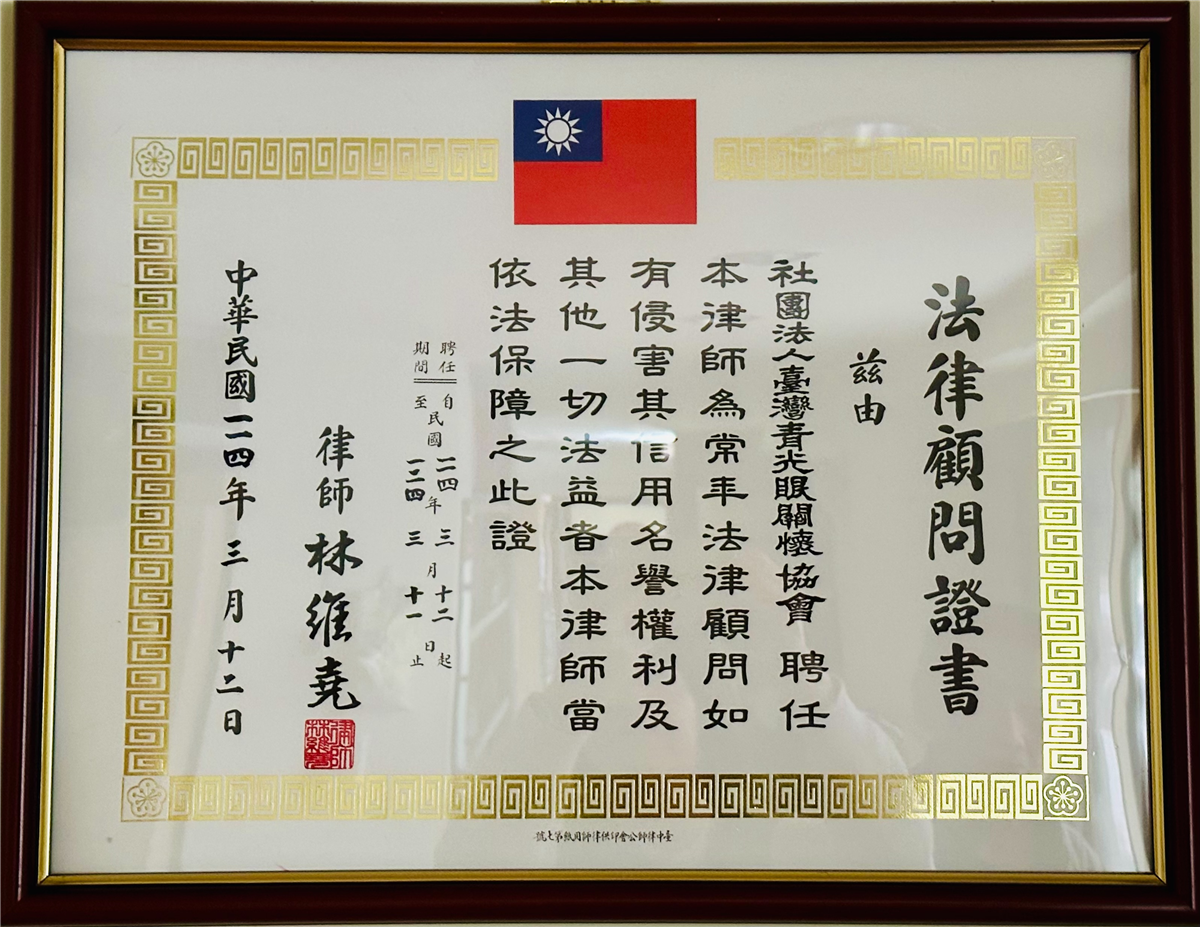 法律顧問證書
茲由
社團法人臺灣青光眼關懷協會 聘任
本律師為常年法律顧問如
有侵害其信用名譽權利及
其他一切法益者本律師當
依法保障之此證
聘任期間 自民國一一四年三月十二日起
至民國一二四年三月十一日止
律師 林維堯
中華民國一一四年三月十二日
臺中律師公會印供律師用紙第七號